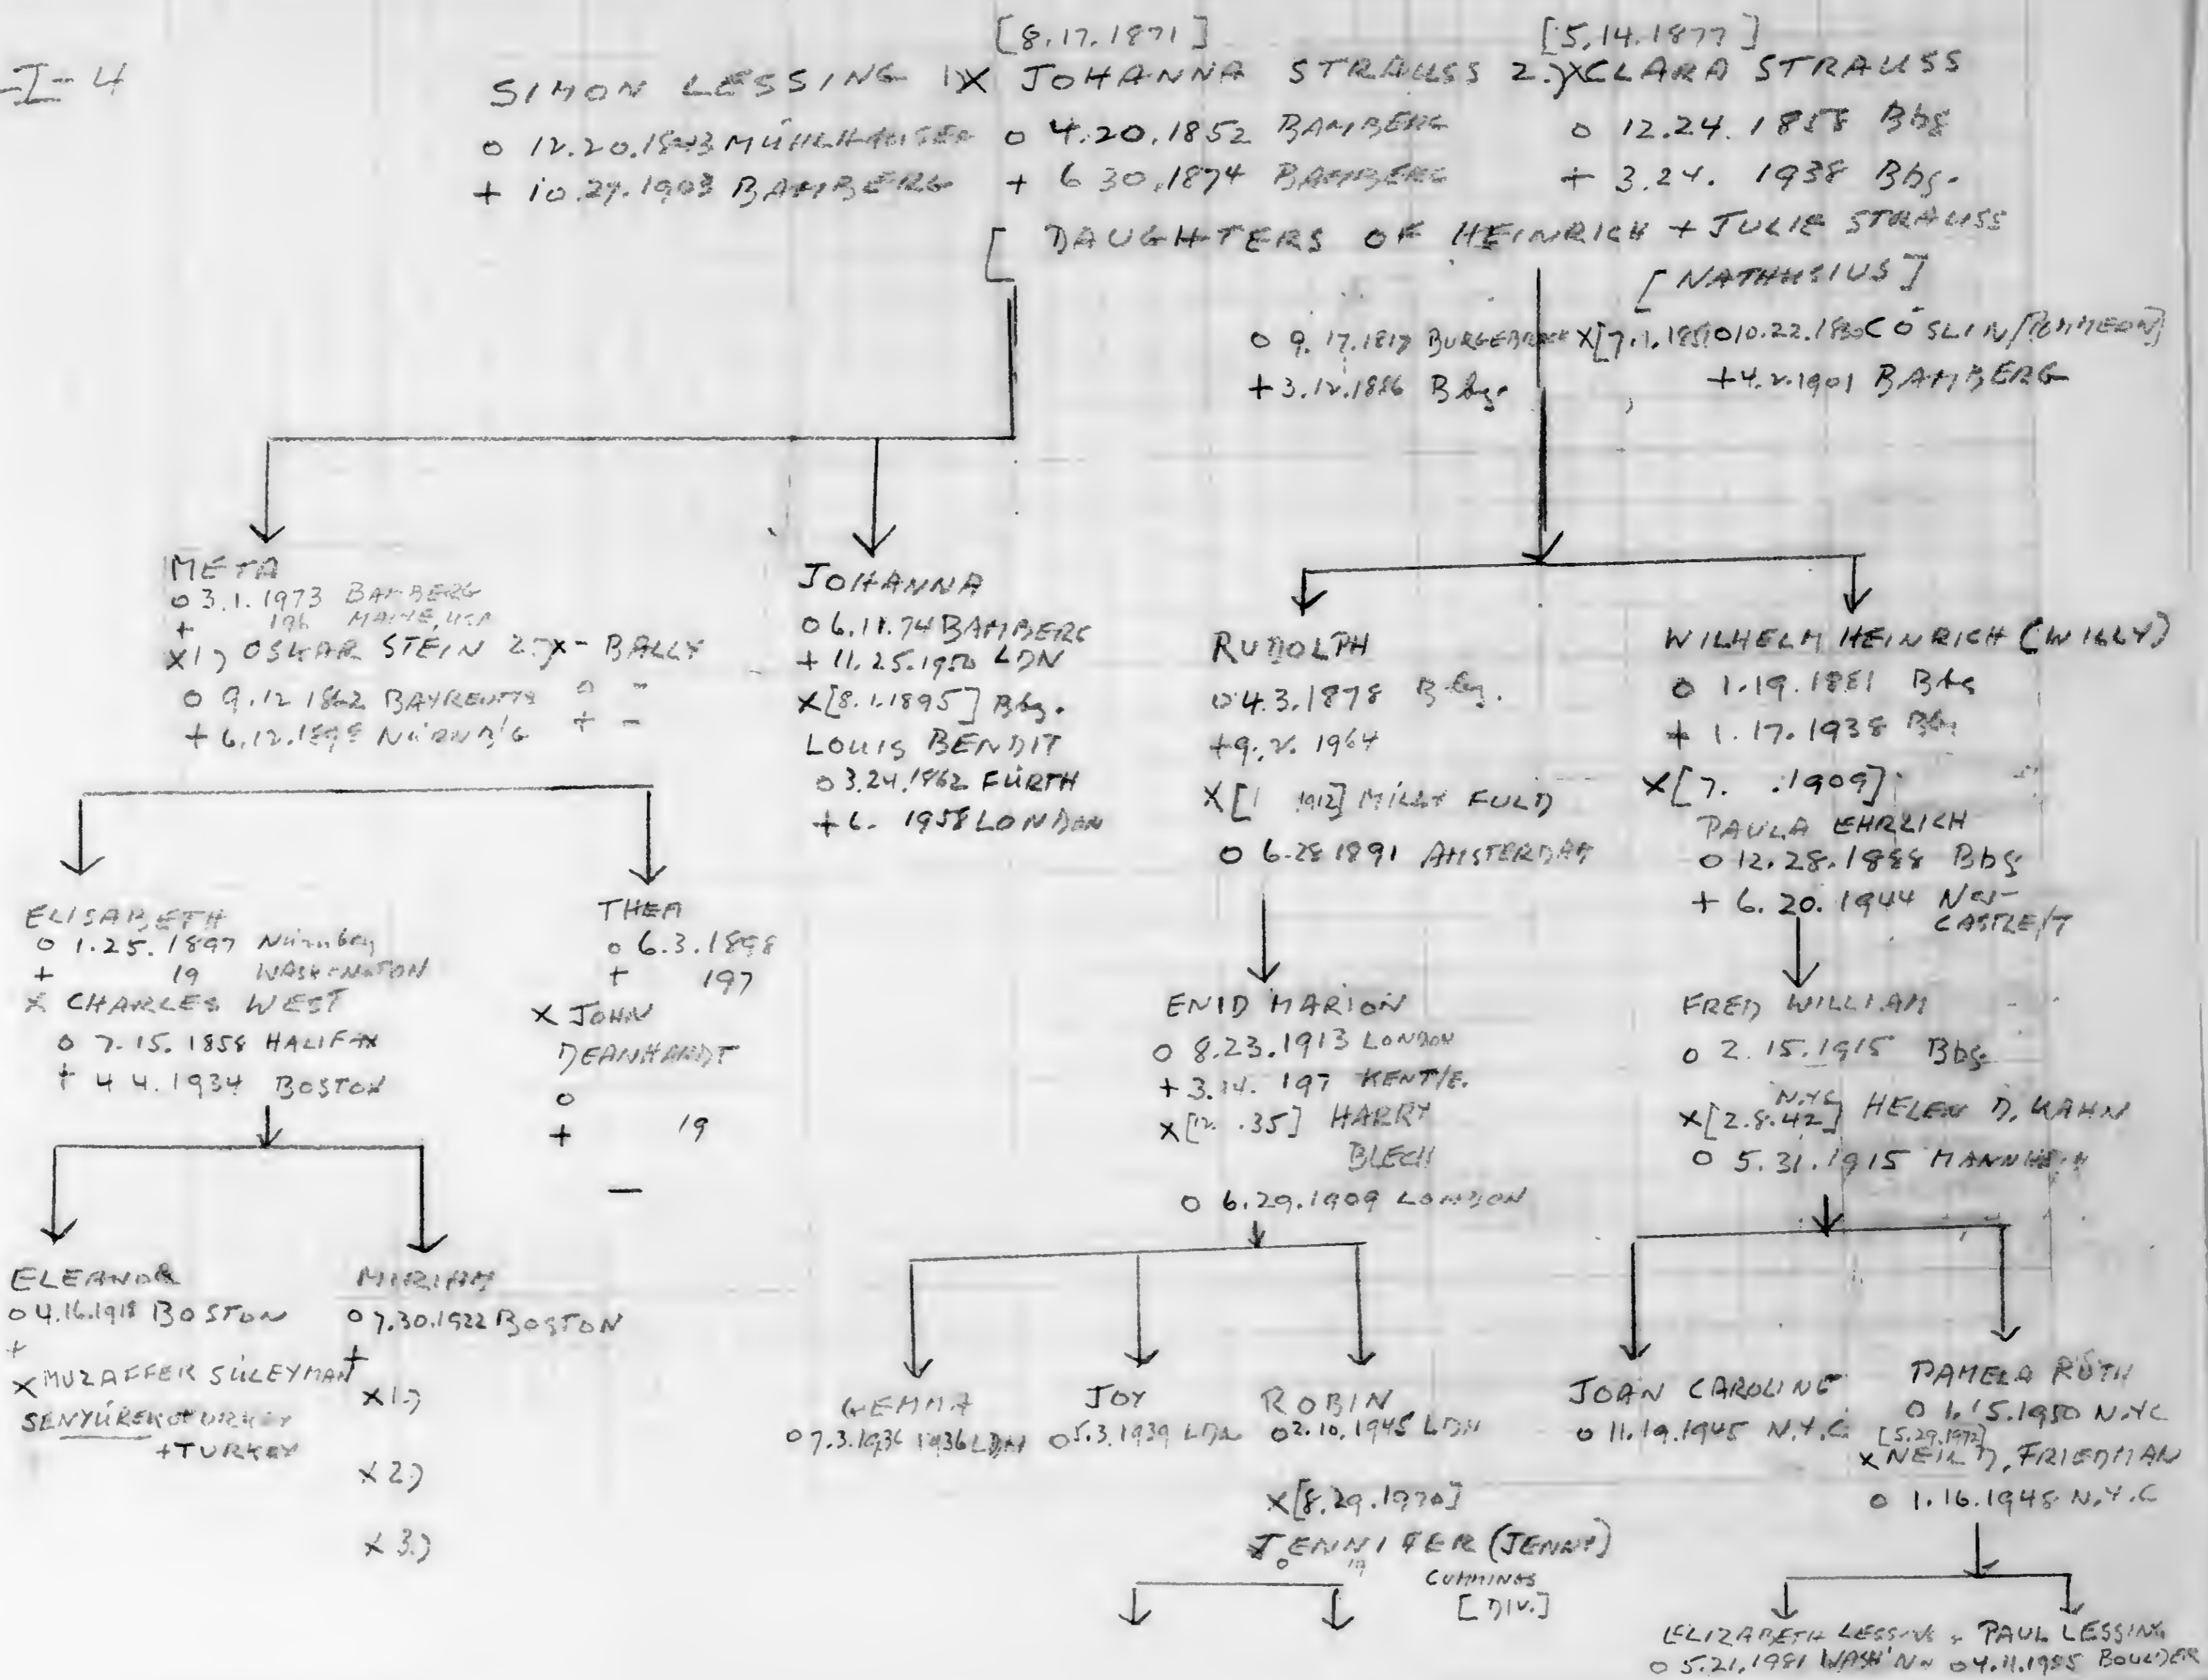 I-4
[8.17.1871] [5.14.1877]
SIMON LESSING 1)X JOHANNA STRAUSS 2.)X CLARA STRAUSS
o 12.20.1843 o 4.20.1852 BAMBERG o 12.24.1858 Bbg
+ 10.27.1903 BAMBERG + 6 30.1874 BAMBERG + 3.24. 1938 Bbg.
[ DAUGHTERS OF HEINRICH + JULIE STRAUSS
[NATHUSIUS]
o 9.17.1817 X[7.1. o 10.22.1830 CÖSLIN/
+ 3.12.1886 Bbg. + 4.2.1901 BAMBERG
META
o 3.1.1973 BAMBERG
+ 196 MAINE, USA
X1) OSKAR STEIN 2.)X - BALLY
o 9.12 1862 o -
+ 6.12. NÜRNB'G + -
JOHANNA
o 6.11.74 BAMBERG
+ 11.25.1950 LDN
X[8.1.1895] Bbg.
LOUIS BENDIT
o 3.24.1862 FÜRTH
+ 6. 1958 LONDON
RUDOLPH
o 4.3.1878 Bbg.
+ 9.2. 1964
X[1 1912] MILLY FULD
o 6.28 1891 AMSTERDAM
WILHELM HEINRICH (WILLY)
o 1.19.1881 Bbg
+ 1.17.1938 Bbg
X[7. .1909]
PAULA EHRLICH
o 12.28.1888 Bbg
+ 6.20.1944 New-
CASTLE/T
ELISABETH
o 1.25.1897 Nürnberg
+ 19 WASHINGTON
X CHARLES WEST
o 7.15.1858 HALIFAX
+ 4 4.1934 BOSTON
THEA
o 6.3.1898
+ 197
X JOHN
DEANHARDT
o
+ 19
—
ENID MARION
o 8.23.1913 LONDON
+ 3.14. 197 KENT/E.
X[12. .35] HARRY
BLECH
o 6.29.1909 LONDON
FRED WILLIAM
o 2.15.1915 Bbg
N.YC
X[2.8.42] HELEN D. KAHN
o 5.31.1915 MANNHEIM
ELEANOR
o 4.16.1918 BOSTON
+
X MUZAFFER SÜLEYMAN
SENYÜREK o TURKEY
+ TURKEY
MIRIAM
o 7.30.1922 BOSTON
+
X1.)
X2.)
X3.)
GEMMA
o 7.3.1936 1936 LDN
JOY
o 5.3.1939 LDN
ROBIN
o 2.10.1945 LDN
X[8.29.1970]
JENNIFER (JENNY)
o 19
CUMMINGS
[DIV.]
JOAN CAROLINE
o 11.19.1945 N.Y.C.
PAMELA RUTH
o 1.15.1950 N.YC
[5.29.1972]
X NEIL D. FRIEDMAN
o 1.16.1948 N.Y.C
ELIZABETH LESSING PAUL LESSING
o 5.21.1981 WASH'N o 4.11.1985 BOULDER